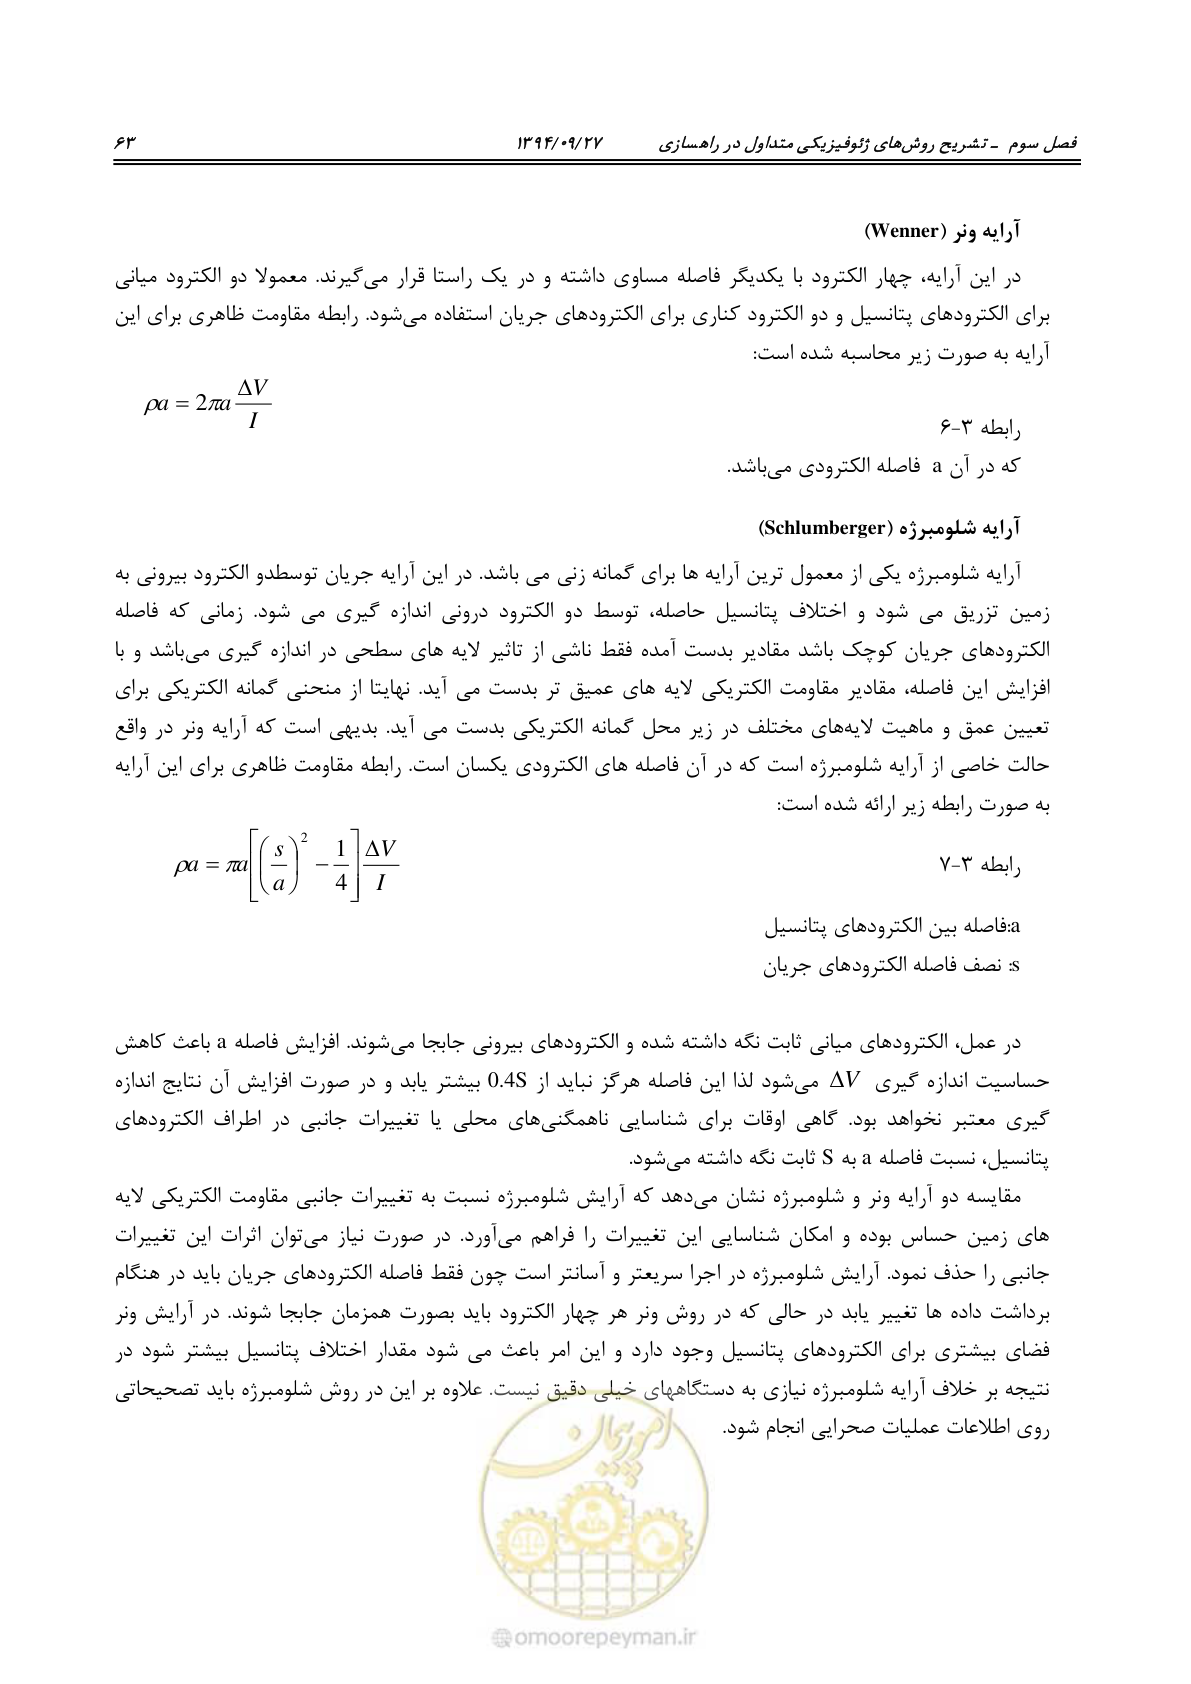 فصل سوم ـ تشریح روش‌های ژئوفیزیکی متداول در راهسازی ۱۳۹۴/۰۹/۲۷ ۶۳
آرایه ونر (Wenner)
در این آرایه، چهار الکترود با یکدیگر فاصله مساوی داشته و در یک راستا قرار می‌گیرند. معمولا دو الکترود میانی
برای الکترودهای پتانسیل و دو الکترود کناری برای الکترودهای جریان استفاده می‌شود. رابطه مقاومت ظاهری برای این
آرایه به صورت زیر محاسبه شده است:
ρa = 2πa ΔV/I
رابطه ۳-۶
که در آن a فاصله الکترودی می‌باشد.
آرایه شلومبرژه (Schlumberger)
آرایه شلومبرژه یکی از معمول ترین آرایه ها برای گمانه زنی می باشد. در این آرایه جریان توسطدو الکترود بیرونی به
زمین تزریق می شود و اختلاف پتانسیل حاصله، توسط دو الکترود درونی اندازه گیری می شود. زمانی که فاصله
الکترودهای جریان کوچک باشد مقادیر بدست آمده فقط ناشی از تاثیر لایه های سطحی در اندازه گیری می‌باشد و با
افزایش این فاصله، مقادیر مقاومت الکتریکی لایه های عمیق تر بدست می آید. نهایتا از منحنی گمانه الکتریکی برای
تعیین عمق و ماهیت لایه‌های مختلف در زیر محل گمانه الکتریکی بدست می آید. بدیهی است که آرایه ونر در واقع
حالت خاصی از آرایه شلومبرژه است که در آن فاصله های الکترودی یکسان است. رابطه مقاومت ظاهری برای این آرایه
به صورت رابطه زیر ارائه شده است:
رابطه ۳-۷ ρa = πa[(s/a)² − 1/4] ΔV/I
a:فاصله بین الکترودهای پتانسیل
s: نصف فاصله الکترودهای جریان
در عمل، الکترودهای میانی ثابت نگه داشته شده و الکترودهای بیرونی جابجا می‌شوند. افزایش فاصله a باعث کاهش
حساسیت اندازه گیری ΔV می‌شود لذا این فاصله هرگز نباید از 0.4S بیشتر یابد و در صورت افزایش آن نتایج اندازه
گیری معتبر نخواهد بود. گاهی اوقات برای شناسایی ناهمگنی‌های محلی یا تغییرات جانبی در اطراف الکترودهای
پتانسیل، نسبت فاصله a به S ثابت نگه داشته می‌شود.
مقایسه دو آرایه ونر و شلومبرژه نشان می‌دهد که آرایش شلومبرژه نسبت به تغییرات جانبی مقاومت الکتریکی لایه
های زمین حساس بوده و امکان شناسایی این تغییرات را فراهم می‌آورد. در صورت نیاز می‌توان اثرات این تغییرات
جانبی را حذف نمود. آرایش شلومبرژه در اجرا سریعتر و آسانتر است چون فقط فاصله الکترودهای جریان باید در هنگام
برداشت داده ها تغییر یابد در حالی که در روش ونر هر چهار الکترود باید بصورت همزمان جابجا شوند. در آرایش ونر
فضای بیشتری برای الکترودهای پتانسیل وجود دارد و این امر باعث می شود مقدار اختلاف پتانسیل بیشتر شود در
نتیجه بر خلاف آرایه شلومبرژه نیازی به دستگاههای خیلی دقیق نیست. علاوه بر این در روش شلومبرژه باید تصحیحاتی
روی اطلاعات عملیات صحرایی انجام شود.
امور پیمان
omoorepeyman.ir